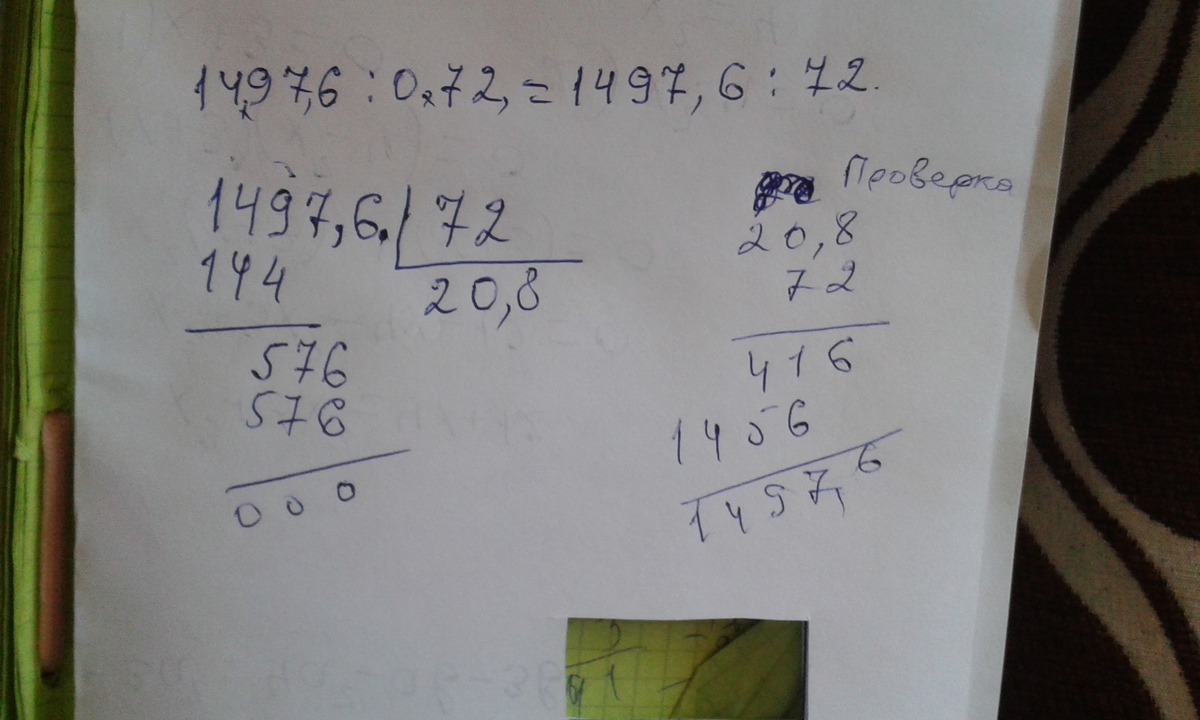 14,97,6 : 0,72, = 1497,6 : 72.
1497,6. 72
144 20,8
576
576
000
Проверка
20,8
72
416
1456
1497,6
1